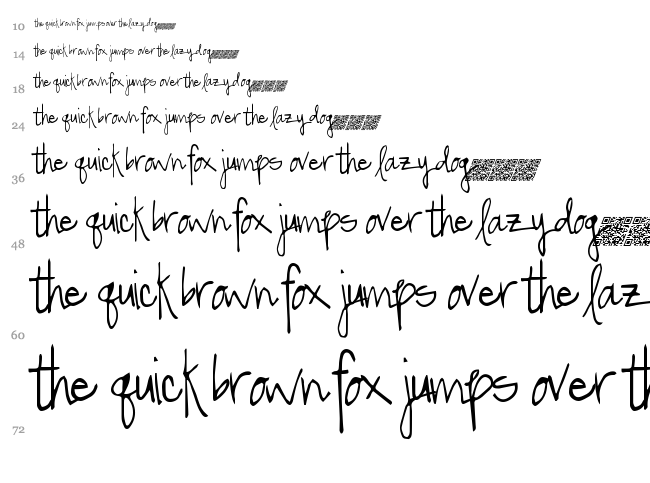 10 the quick brown fox jumps over the lazy dog
14 the quick brown fox jumps over the lazy dog
18 the quick brown fox jumps over the lazy dog
24 the quick brown fox jumps over the lazy dog
36 the quick brown fox jumps over the lazy dog
48 the quick brown fox jumps over the lazy dog
60 the quick brown fox jumps over the laz
72 the quick brown fox jumps over th